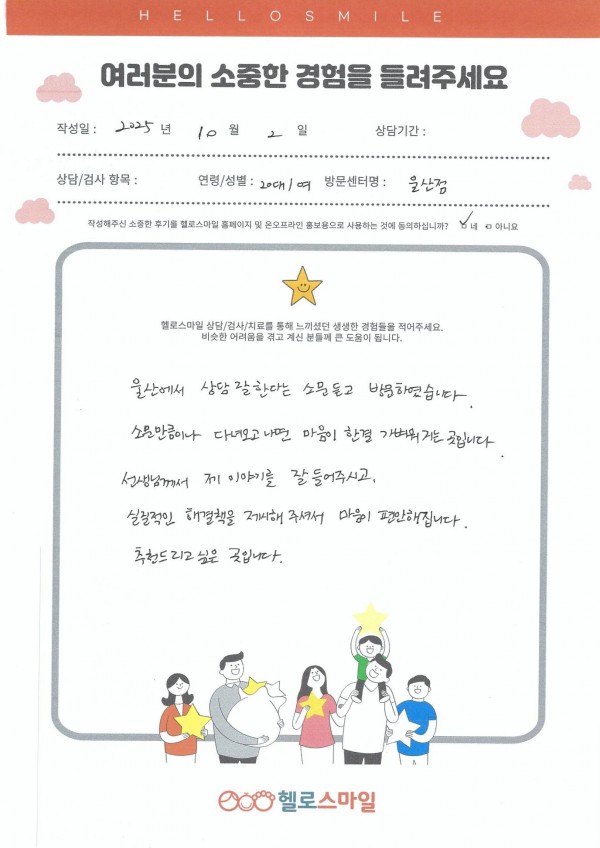 HELLOSMILE
여러분의 소중한 경험을 들려주세요
작성일 : 2025 년 10 월 2 일 상담기간 :
상담/검사 항목 : 연령/성별 : 20대/여 방문센터명 : 울산점
작성해주신 소중한 후기를 헬로스마일 홈페이지 및 온오프라인 홍보용으로 사용하는 것에 동의하십니까? 네 아니요
헬로스마일 상담/검사/치료를 통해 느끼셨던 생생한 경험들을 적어주세요.
비슷한 어려움을 겪고 계신 분들께 큰 도움이 됩니다.
울산에서 상담 잘한다는 소문 듣고 방문하였습니다.
소문만큼이나 다녀오고 나면 마음이 한결 가벼워지는 곳입니다
선생님께서 제 이야기를 잘 들어주시고,
실질적인 해결책을 제시해 주셔서 마음이 편안해집니다.
추천드리고 싶은 곳입니다.
헬로스마일